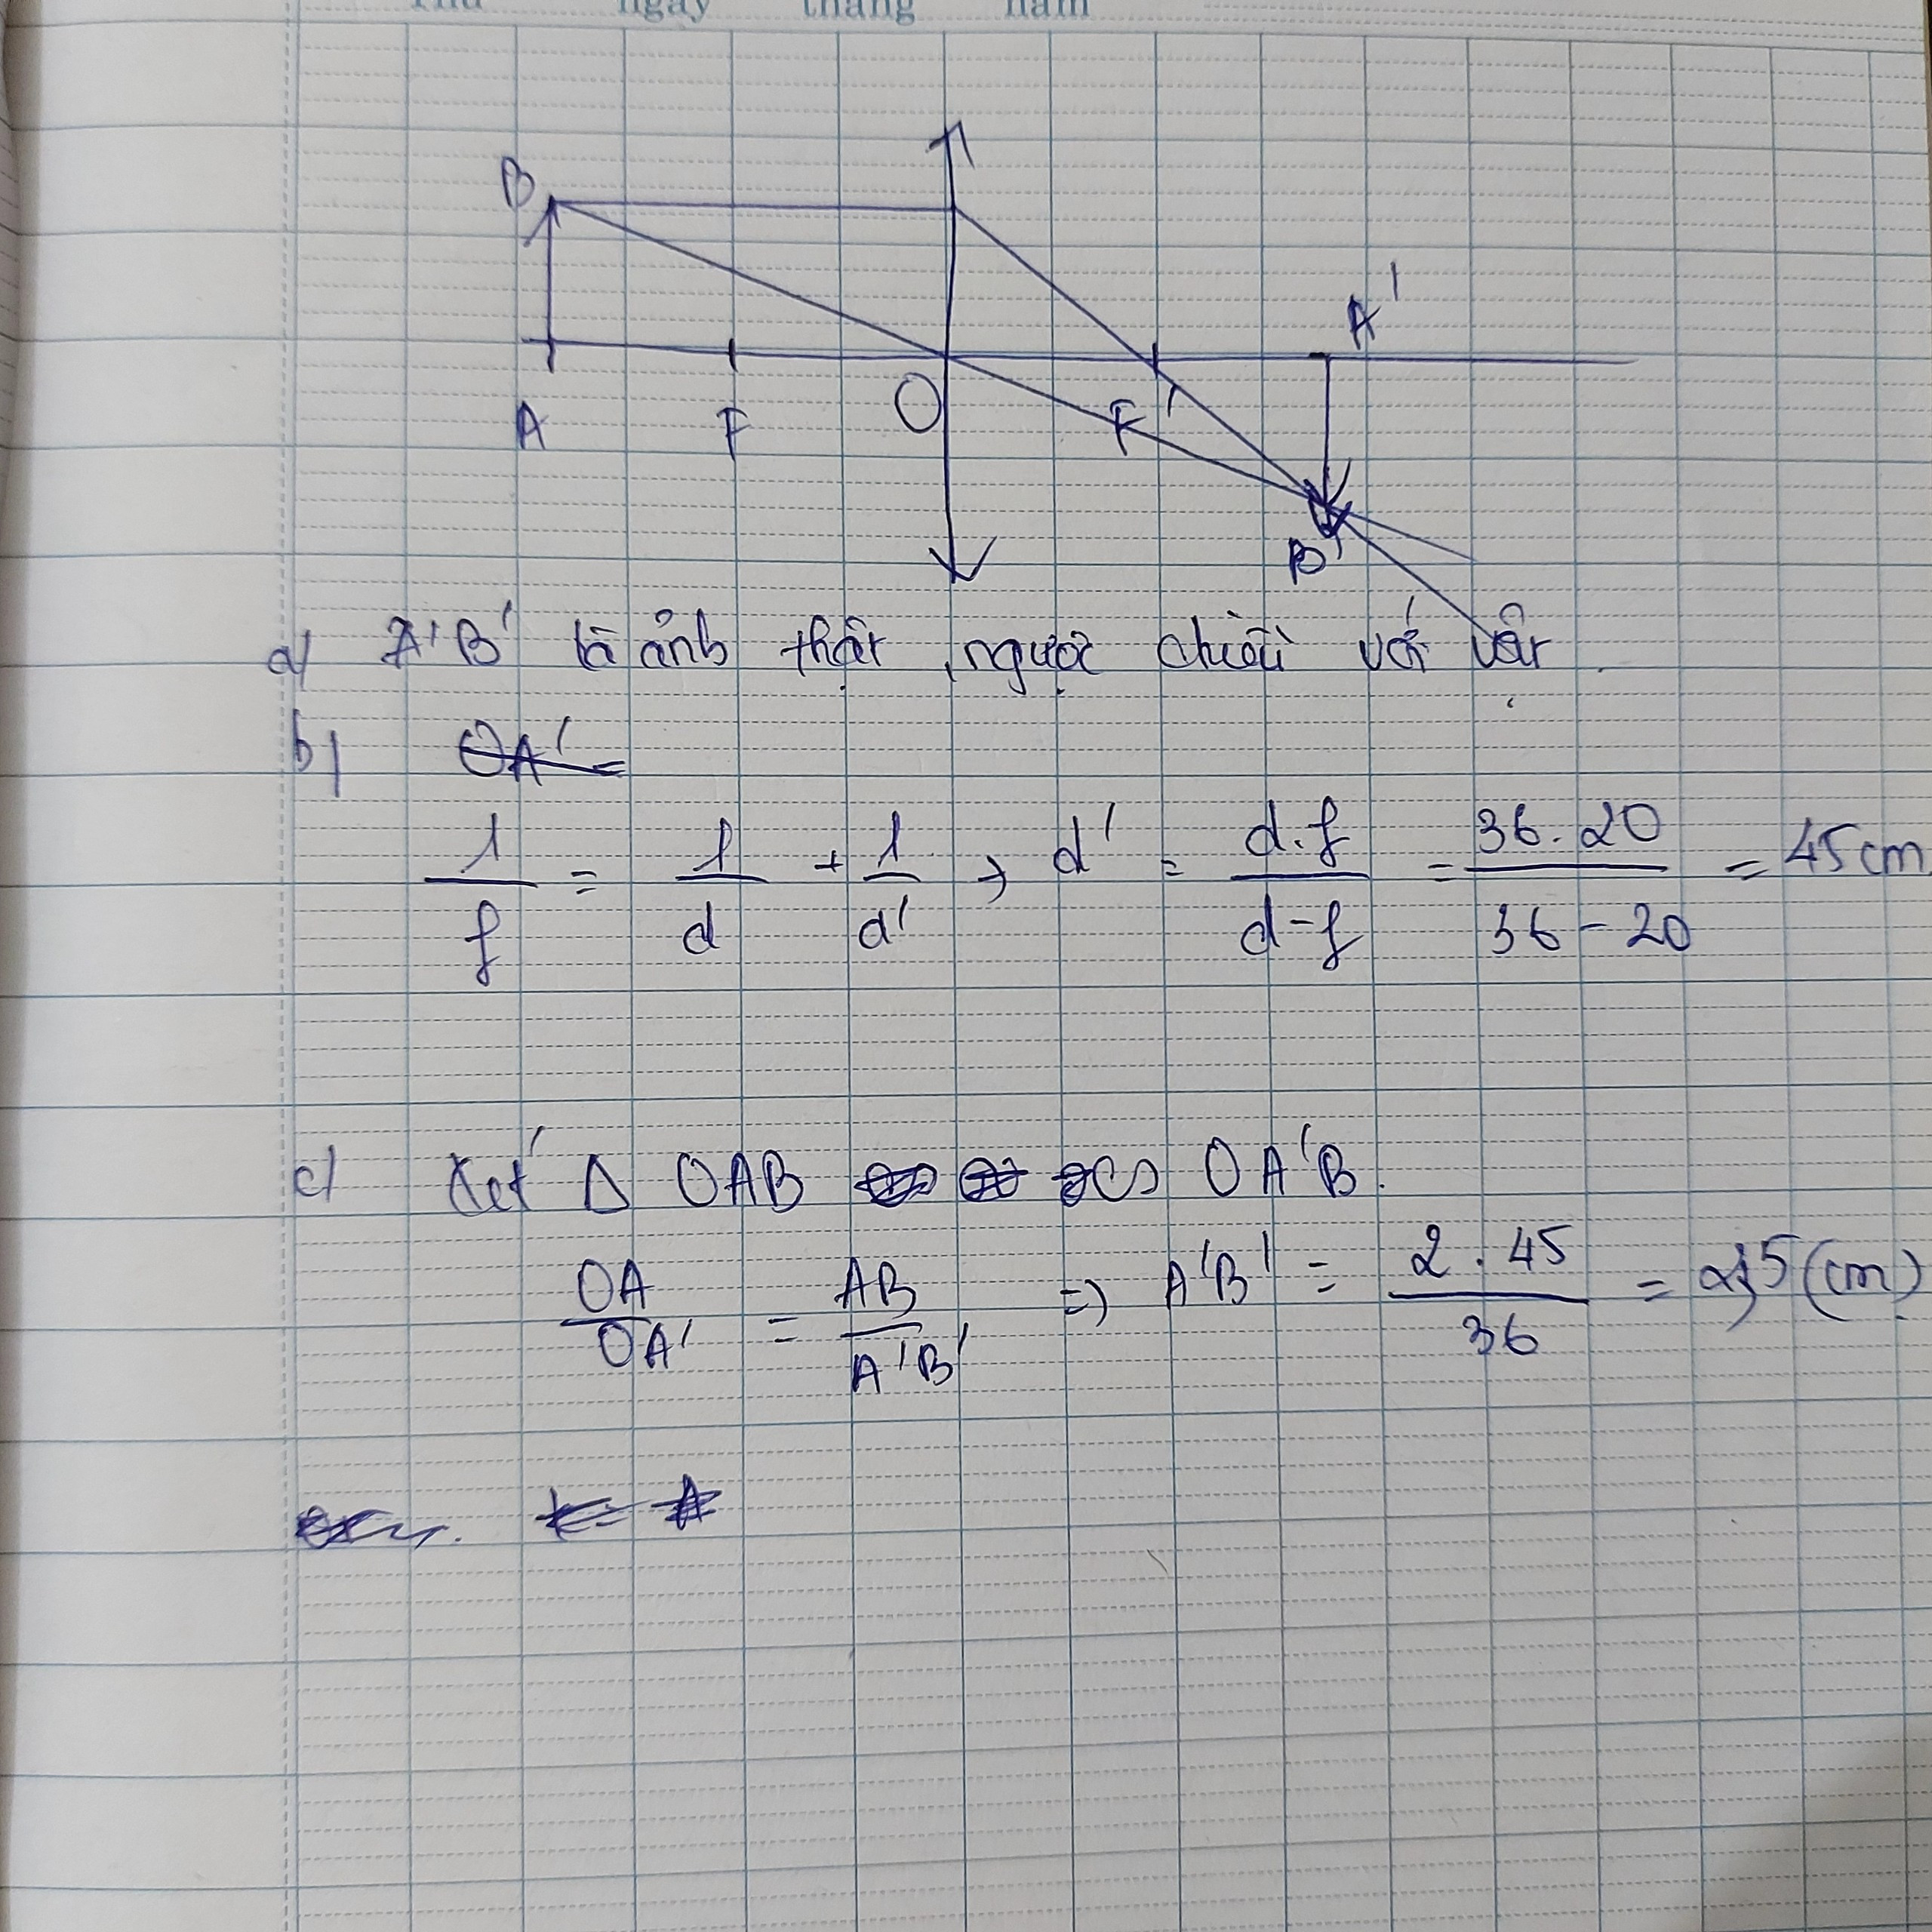 Thứ ngày tháng năm
B
A'
A F O F'
B'
a/ A'B' là ảnh thật, ngược chiều với vật.
b/ OA' =
1/f = 1/d + 1/d' → d' = d.f/d-f = 36.20/36-20 = 45cm
c/ Xét Δ OAB ∽ OA'B.
OA/OA' = AB/A'B' => A'B' = 2.45/36 = 2,5 (cm)